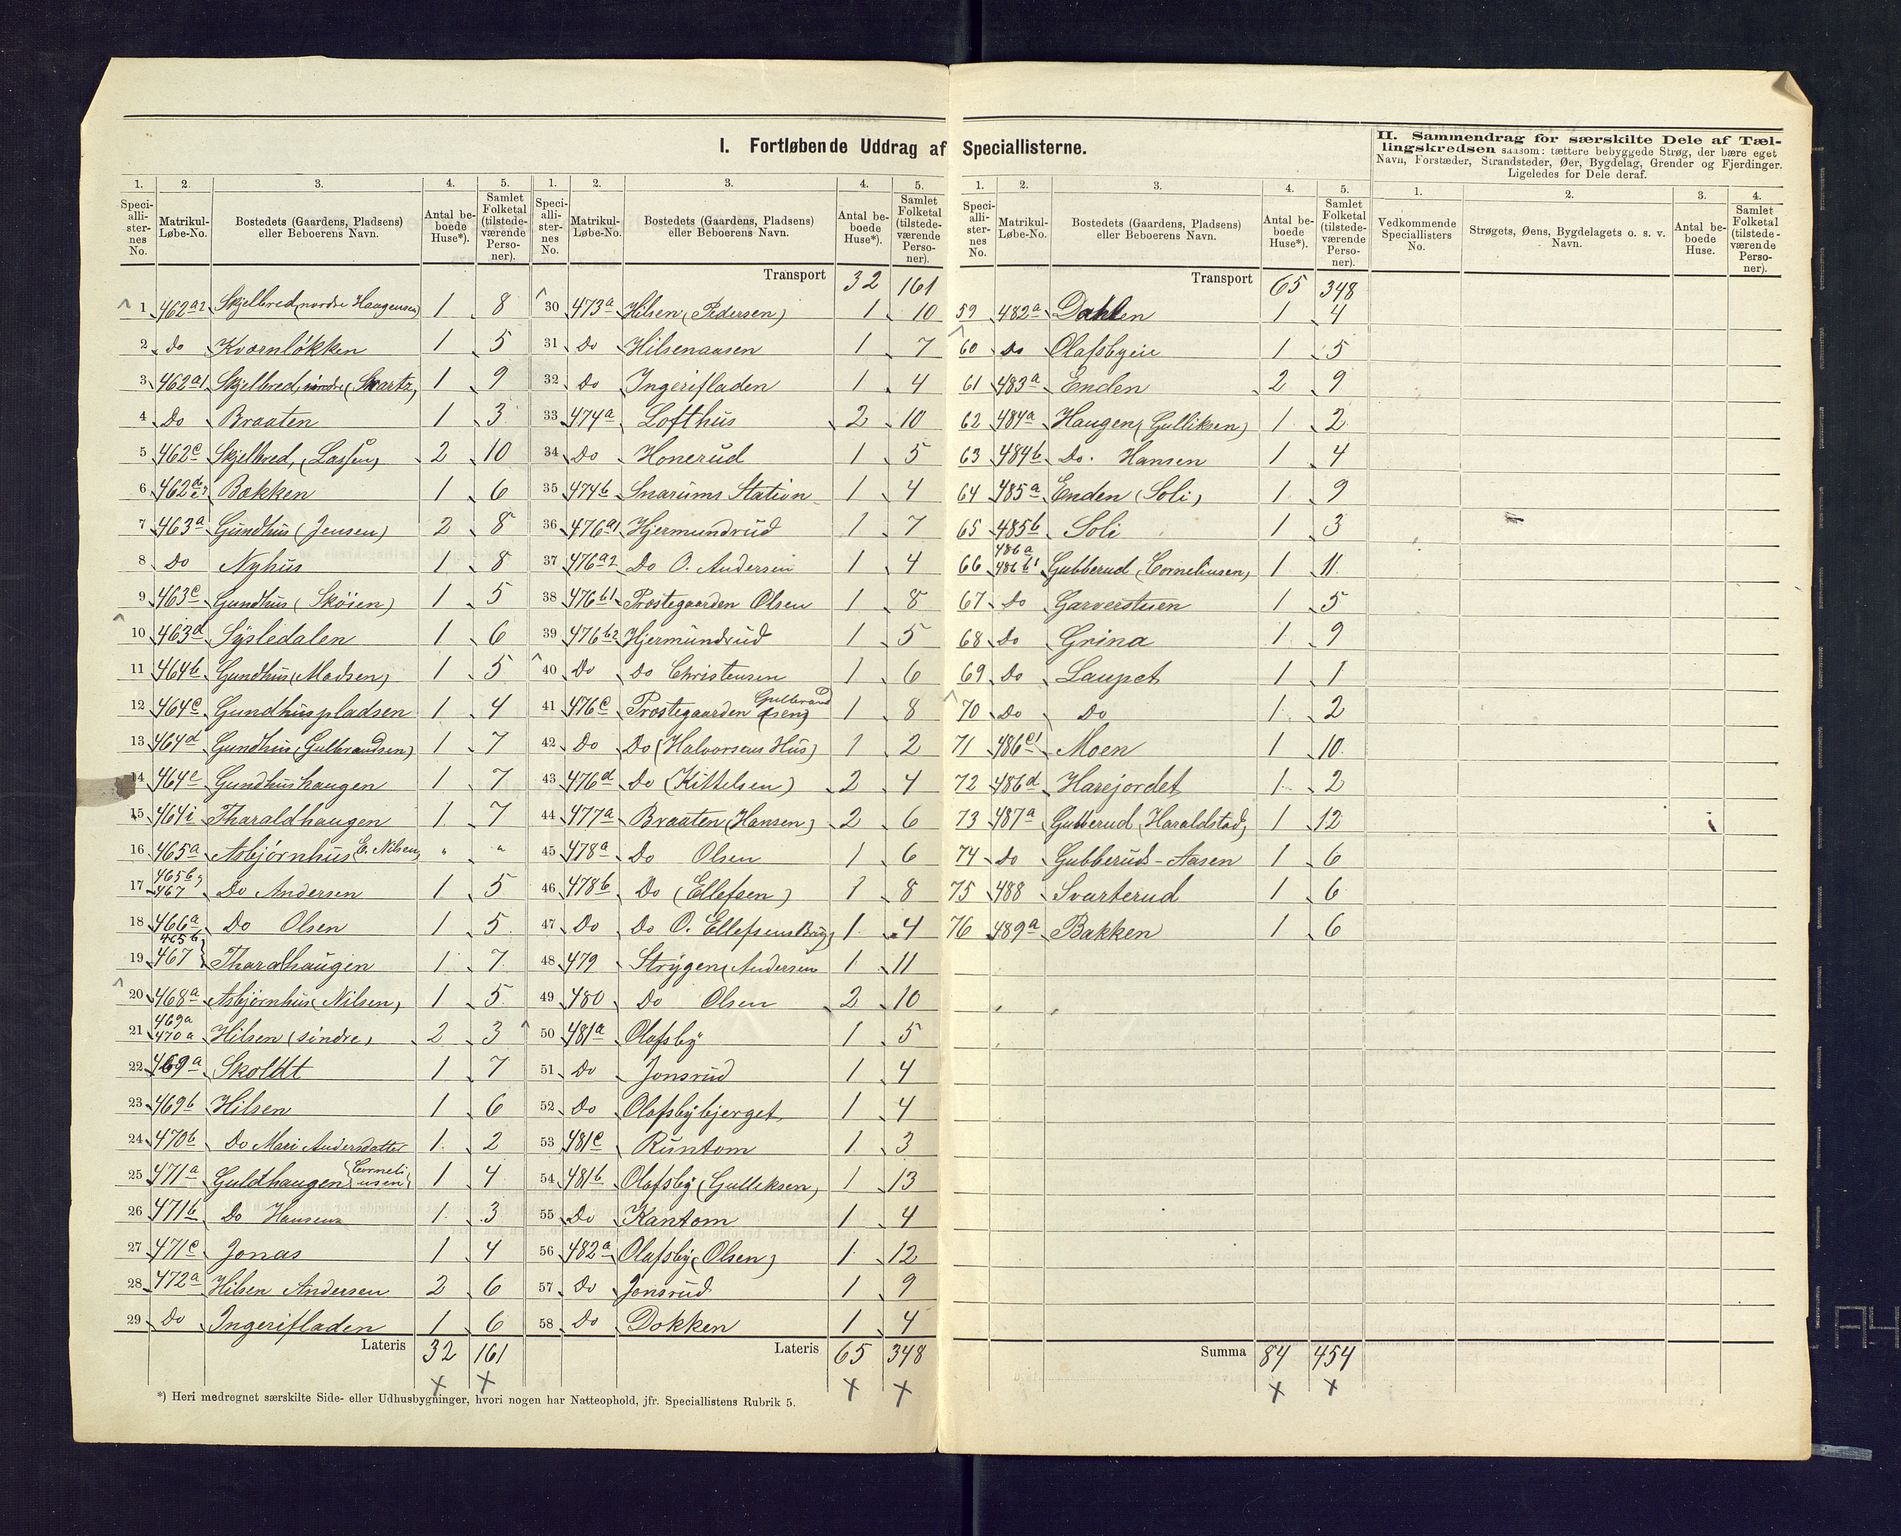 I. Fortløbende Uddrag af Speciallisterne.
II. Sammendrag for særskilte Dele af Tæl-
lingskredsen saasom: tættere bebyggede Strøg, der bære eget
Navn, Forstæder, Strandsteder, Øer, Bygdelag, Grender og Fjerdinger.
Ligeledes for Dele deraf.
1. 2. 3. 4. 5.
Speciallisternes No. Matrikul-Løbe-No. Bostedets (Gaardens, Pladsens) eller Beboerens Navn. Antal beboede Huse*). Samlet Folketal (tilstedeværende Personer).
1 462a2 Skjelbred, nordre Haugensen 1 8
2 Do Kværnløkken 1 5
3 462a1 Skjelbred, nordre (Svartz) 1 9
4 Do Braaten 1 3
5 462c Skjelbred, (Lassen) 2 10
6 462d e Bakken 1 6
7 463a Gundhus (Jensen) 2 8
8 Do Nyhus 1 8
9 463c Gundhus (Skøien) 1 5
10 463d Sysledalen 1 6
11 464b Gundhus (Madsen) 1 5
12 464c Gundhuspladsen 1 4
13 464d Gundhus (Gulbrandsen) 1 7
14 464e Gundhushaugen 1 7
15 464i Tharaldhaugen 1 7
16 465a Asbjørnhus E. Nilsen " "
17 465b, 467 Do Andersen 1 5
18 466a Do Olsen 1 5
19 465b 467 Tharalhaugen 1 7
20 468a Asbjørnhus (Nilsen) 1 5
21 469a 470a Hilsen (sindre) 2 3
22 469a Skoldt 1 7
23 469b Hilsen 1 6
24 470b Do Mari Andersdatter 1 2
25 471a Guldhaugen (Corneliusen) 1 4
26 471b Do Hansens 1 3
27 471c Jonas 1 4
28 472a Hilsen Andersen 2 6
29 Do Ingerifladen 1 6
Lateris 32 161
*) Heri medregnet særskilte Side- eller Udhusbygninger, hvori nogen har Natteophold, jfr. Speciallistens Rubrik 5.
1. 2. 3. 4. 5.
Speciallisternes No. Matrikul-Løbe-No. Bostedets (Gaardens, Pladsens) eller Beboerens Navn. Antal beboede Huse*). Samlet Folketal (tilstedeværende Personer).
Transport 32 161
30 473a Hilsen (Pedersen) 1 10
31 Do Hilsenaasen 1 7
32 Do Ingerifladen 1 4
33 474a Lofthus 2 10
34 Do Honerud 1 5
35 474b Snarums Station 1 4
36 476a1 Hjermundrud 1 7
37 476a2 Do O. Andersen 1 4
38 476b1 Prostegaarden Olsen 1 8
39 476b2 Hjermundrud 1 5
40 Do Do Christensen 1 6
41 476c Prostegaarden Gulbrandsen 1 8
42 Do Do (Halvorsens Hus) 1 2
43 476d Do (Kittelsen) 2 4
44 477a Braaten (Hansen) 2 6
45 478a Do Olsen 1 6
46 478b Do (Ellefsen) 1 8
47 Do Do O. Ellefsens 1 4
48 479 Strygen, Andersen 1 11
49 480 Do Olsen 2 10
50 481a Olafsby 1 5
51 Do Jonsrud 1 4
52 Do Olafsbybjerget 1 4
53 481c Runtom 1 3
54 481b Olafsby (Gulliksen) 1 13
55 Do Kantom 1 4
56 482a Olafsby (Olsen) 1 12
57 Do Jonsrud 1 9
58 Do Dokken 1 4
Lateris 65 348
1. 2. 3. 4. 5.
Speciallisternes No. Matrikul-Løbe-No. Bostedets (Gaardens, Pladsens) eller Beboerens Navn. Antal beboede Huse*). Samlet Folketal (tilstedeværende Personer).
Transport 65 348
59 482a Dahlen 1 4
60 Do Olafsbyeie 1 5
61 483a Enden 2 9
62 484a Haugen (Gulliksen) 1 2
63 484b Do. Hansen 1 4
64 485a Enden (Soli) 1 9
65 485b Soli 1 3
66 486a 486b1 Gubberud (Corneliusen) 1 11
67 Do Garverstuen 1 5
68 Do Grina 1 9
69 Do Laupet 1 1
70 Do Do 1 2
71 486c1 Moen 1 10
72 486d Harejordet 1 2
73 487a Gubberud (Haraldstad) 1 12
74 Do Gubberuds-Aasen 1 6
75 488 Svarterud 1 6
76 489a Bakken 1 6
Summa 84 454
1. 2. 3. 4.
Vedkommende Speciallisters No. Strøgets, Øens, Bygdelagets o. s. v. Navn. Antal beboede Huse. Samlet Folketal (tilstedeværende Personer).